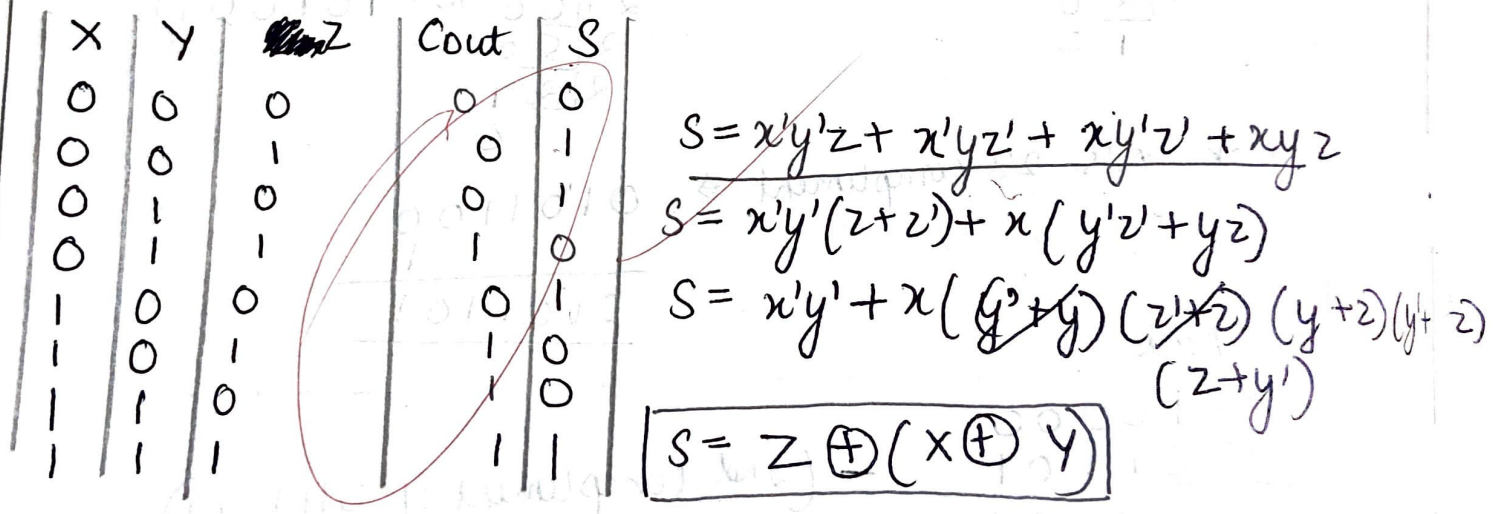 X Y Z Cout S
0 0 0 0 0
0 0 1 0 1
0 1 0 0 1
0 1 1 1 0
1 0 0 0 1
1 0 1 1 0
1 1 0 1 0
1 1 1 1 1
S = x'y'z + x'yz' + xy'z' + xyz
S = x'y'(z+z') + x(y'z'+yz)
S = x'y' + x((y'+y)(z'+z)(y+z)(y'+z)
(z+y')
S = Z ⊕ (X ⊕ Y)